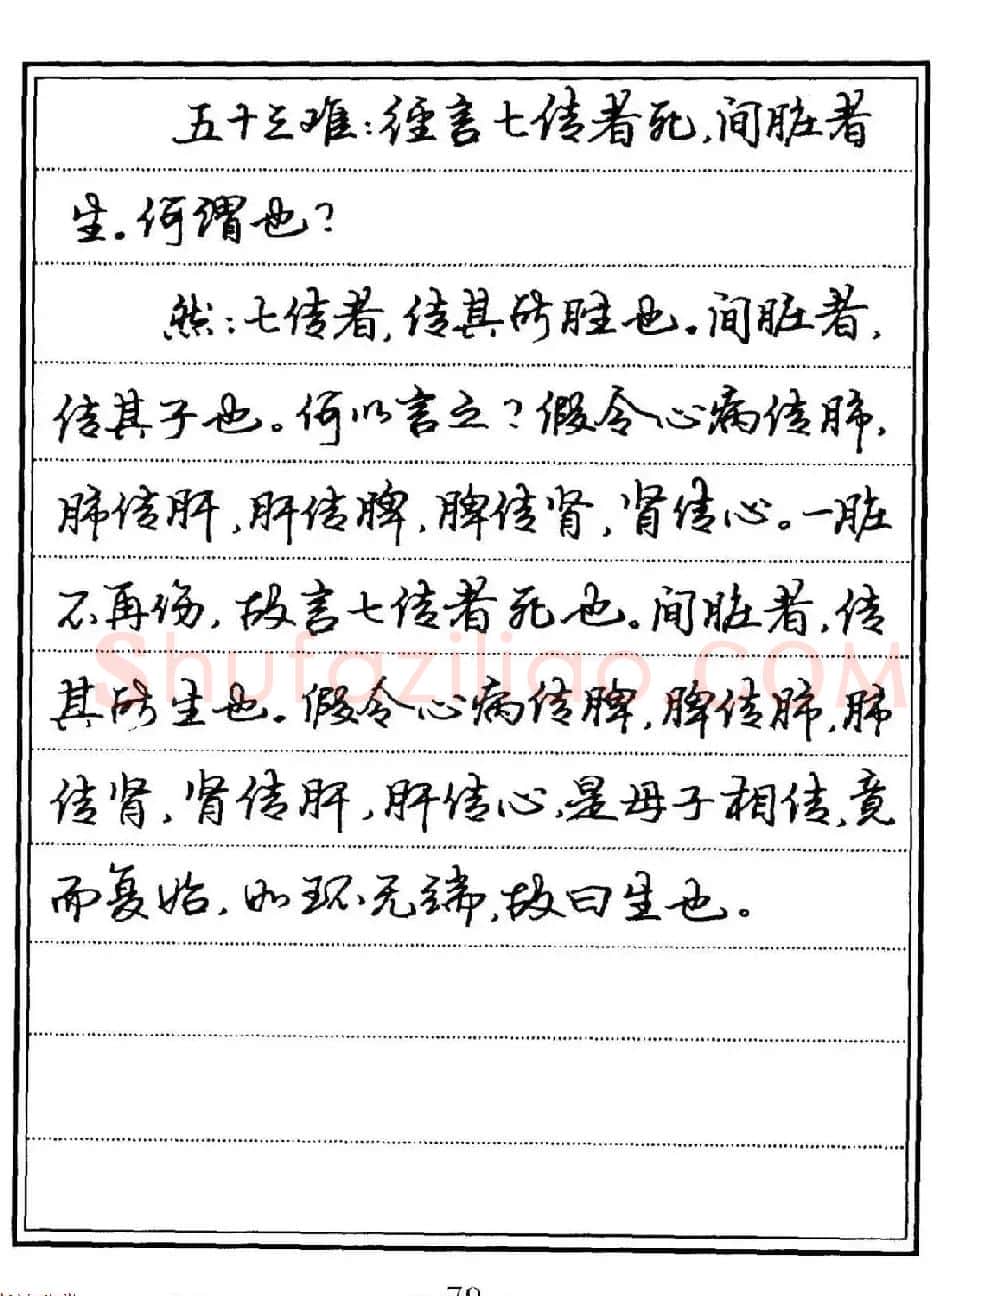 五十三难：经言七传者死，间脏者
生。何谓也？
然：七传者，传其所胜也。间脏者，
传其子也。何以言之？假令心病传肺，
肺传肝，肝传脾，脾传肾，肾传心。一脏
不再伤，故言七传者死也。间脏者，传
其所生也。假令心病传脾，脾传肺，肺
传肾，肾传肝，肝传心，是母子相传，竟
而复始，如环无端，故曰生也。
Shufaziliao.COM